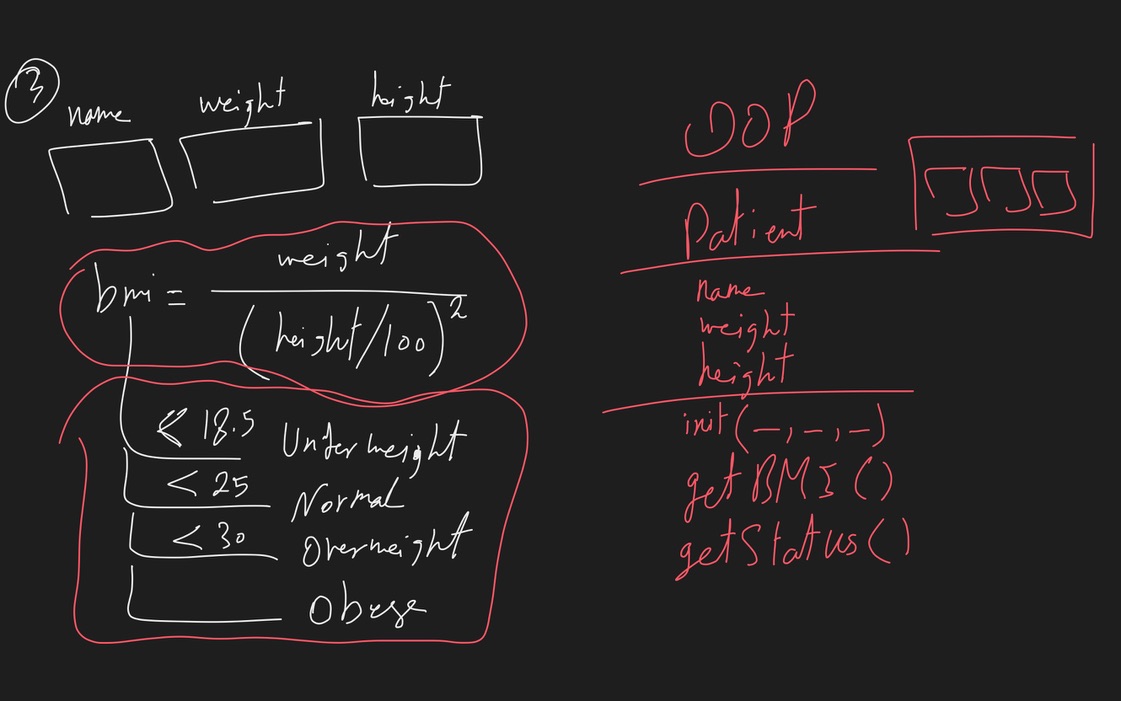 3
name weight height
bmi = weight / (height/100)²
< 18.5 Underweight
< 25 Normal
< 30 Overweight
Obese
OOP
Patient
name
weight
height
init(–, –, –)
getBMI()
getStatus()